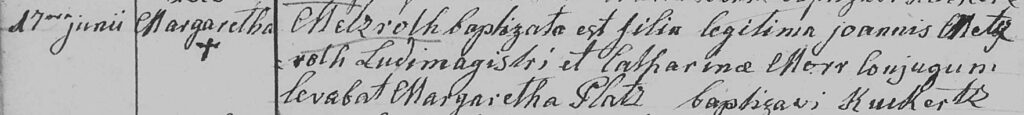 17ma junii Margaretha Metzroth baptizata est filia legitima joannis Metz
+ roth Ludimagistri et Catharinæ Morr Conjugum
levabat Margaretha Platz baptizavi Kuckertz